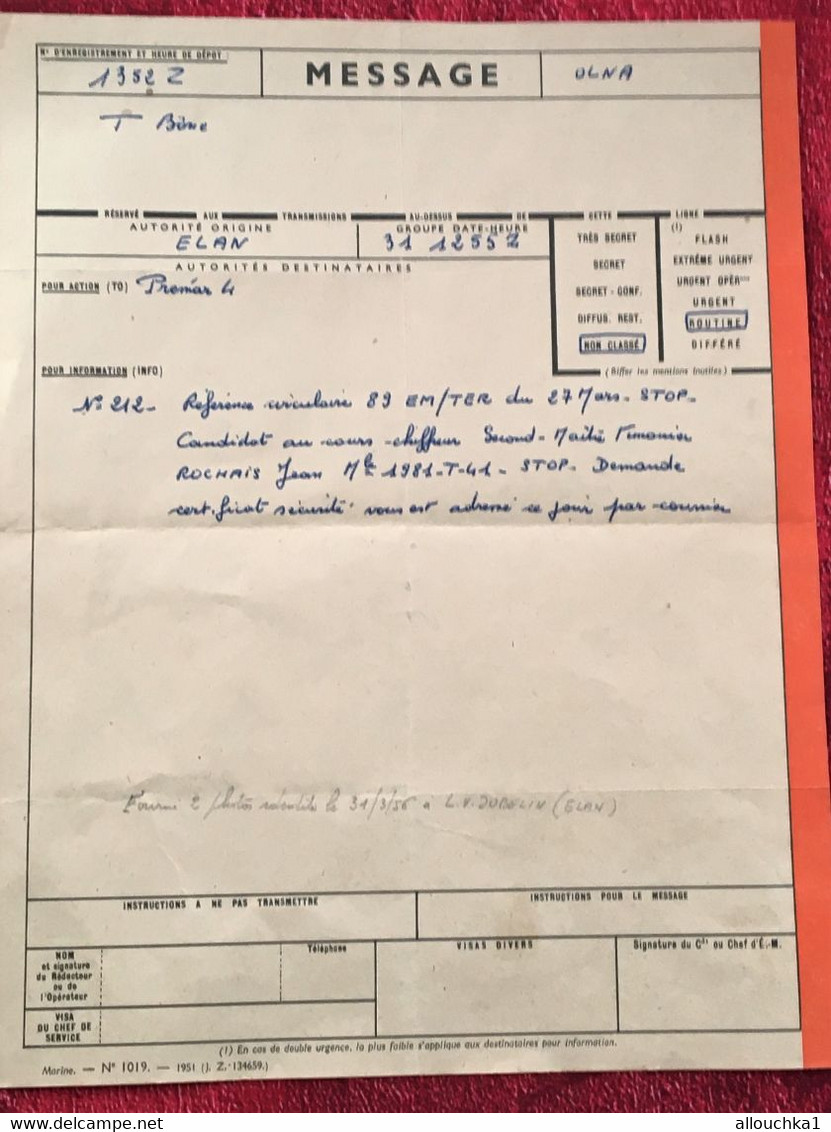 N° D'ENREGISTREMENT ET HEURE DE DÉPOT
1352 Z
MESSAGE
OLNA
T Bône
RÉSERVÉ AUX TRANSMISSIONS AU-DESSUS DE CETTE LIGNE
AUTORITÉ ORIGINE
ELAN
GROUPE DATE-HEURE
31 1255 Z
TRÈS SECRET
SECRET
SECRET - CONF.
DIFFUS. REST.
NON CLASSÉ
(1)
FLASH
EXTRÊME URGENT
URGENT OPÉR
URGENT
ROUTINE
DIFFÉRÉ
(Biffer les mentions inutiles)
AUTORITÉS DESTINATAIRES
POUR ACTION (TO) Premar 4
POUR INFORMATION (INFO)
N° 212 - Référence circulaire 89 EM/TER du 27 Mars - STOP -
Candidat au cours chiffreur Second-Maître Timonier
ROCHAIS Jean Mle 1981-T-41 - STOP - Demande
certificat sécurité vous est adressé ce jour par courrier
Fourni 2 photos le 31/3/56 à L.V. (ELAN)
INSTRUCTIONS A NE PAS TRANSMETTRE
INSTRUCTIONS POUR LE MESSAGE
NOM
et signature
du Rédacteur
ou de
l'Opérateur
Téléphone
VISAS DIVERS
Signature du Ct ou Chef d'É.-M.
VISA
DU CHEF DE
SERVICE
(1) En cas de double urgence, la plus faible s'applique aux destinataires pour information.
Marine. — N° 1019. — 1951 (J. Z. 134659.)
delcampe.net
allouchka1